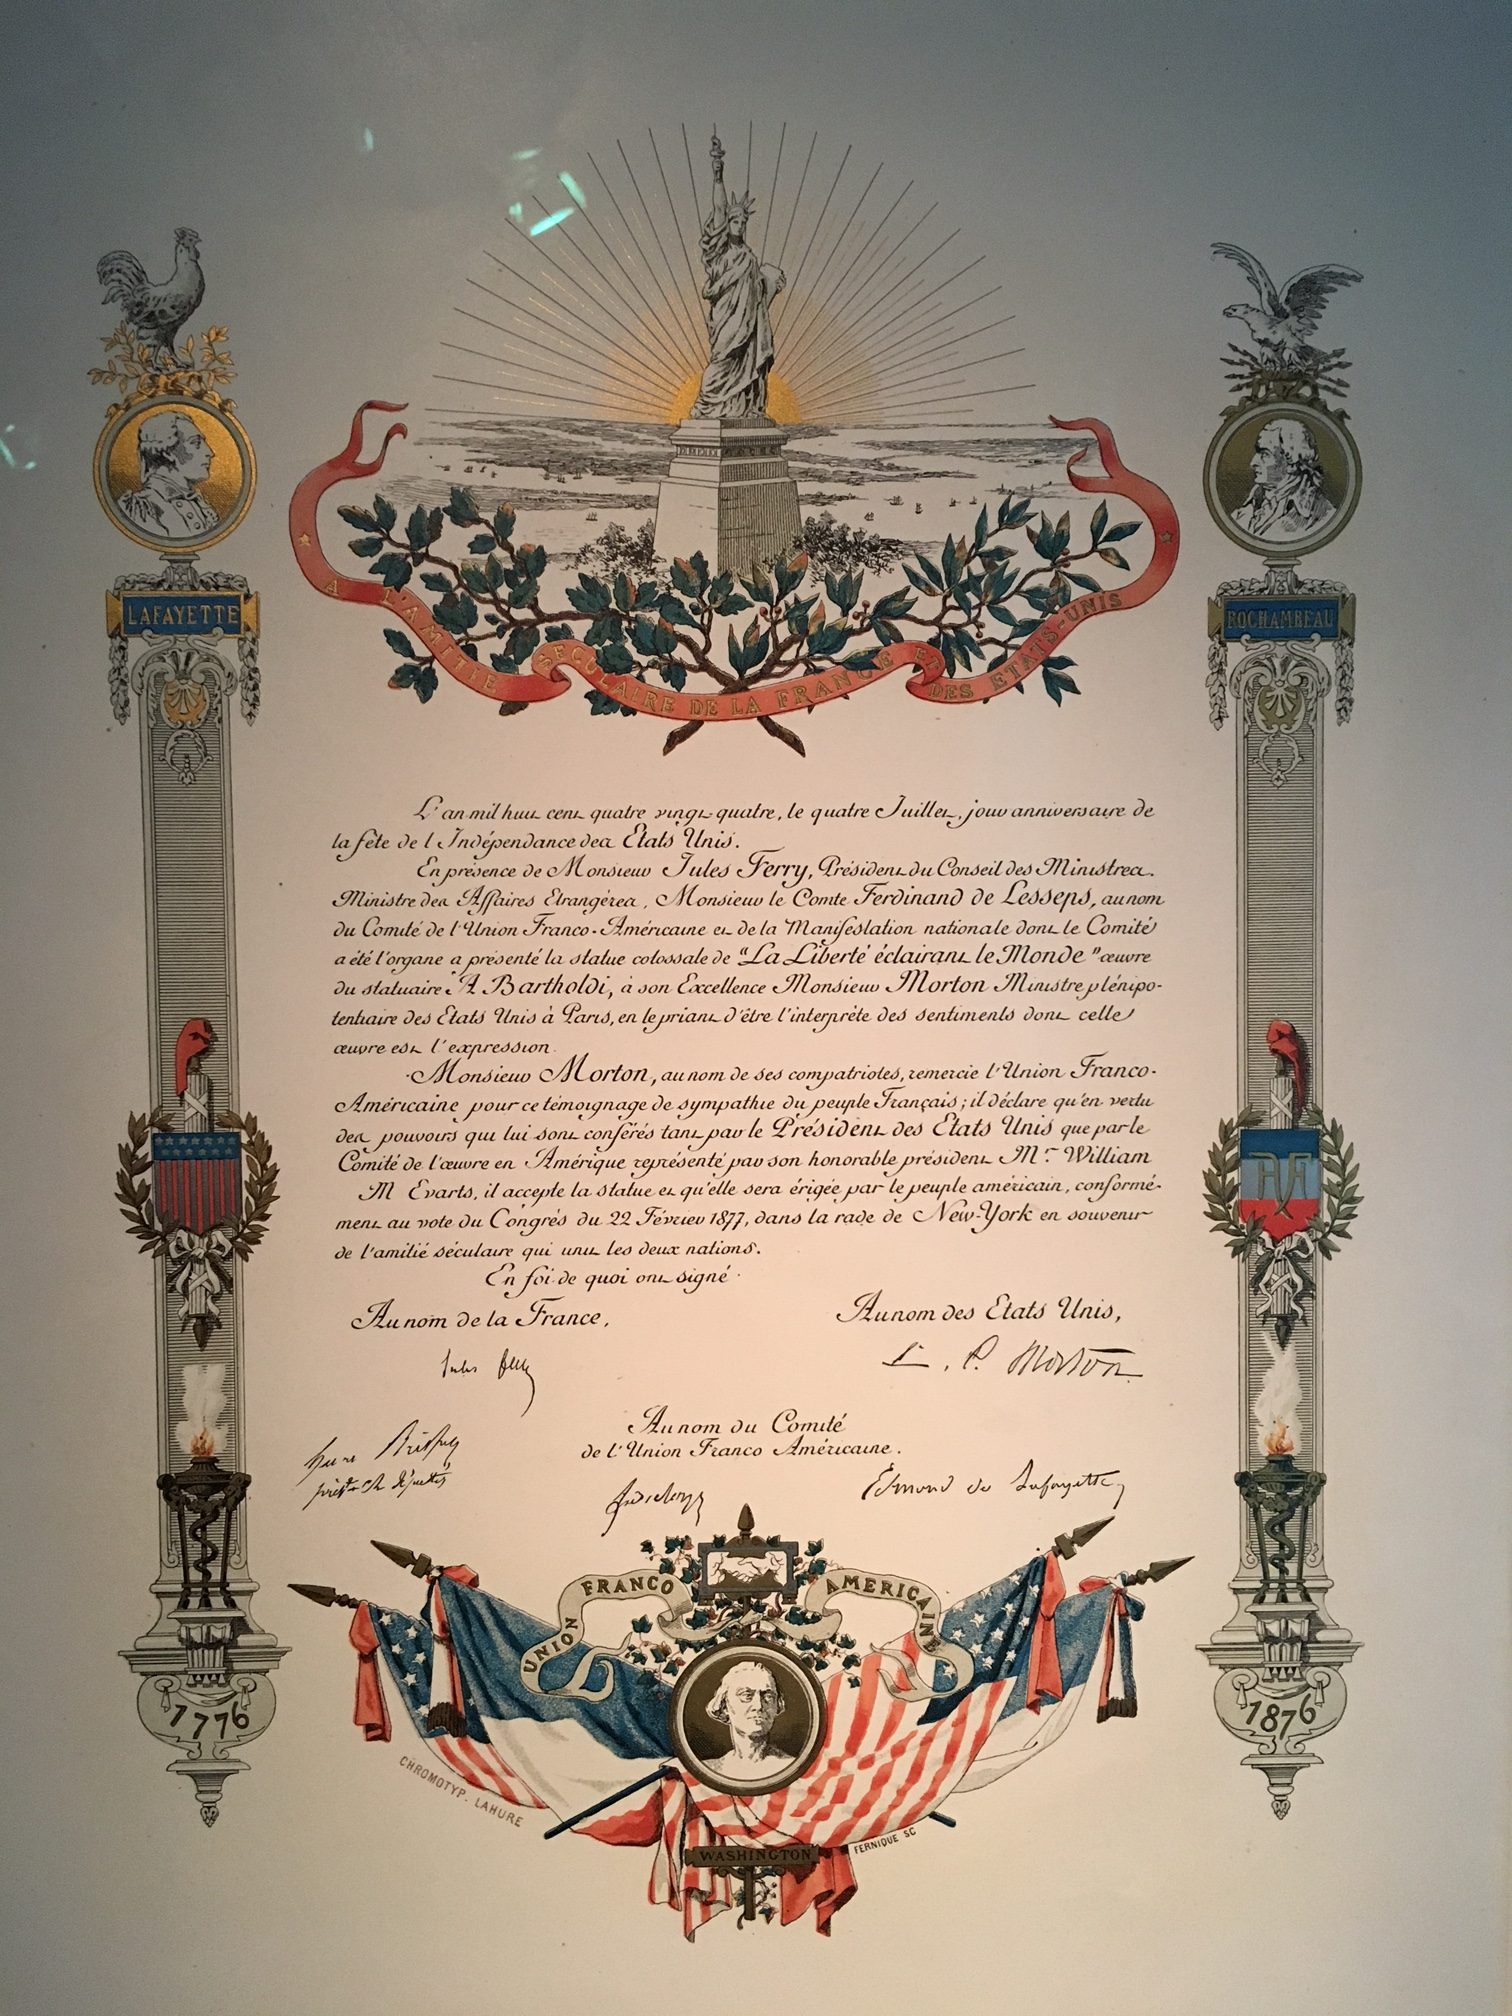 A L'AMITIE SECULAIRE DE LA FRANCE ET DES ETATS-UNIS
LAFAYETTE
ROCHAMBEAU
L'an mil huit cent quatre vingt quatre, le quatre Juillet, jour anniversaire de
la fête de l'Indépendance des Etats Unis.
En présence de Monsieur Jules Ferry, Président du Conseil des Ministres.
Ministre des Affaires Etrangères, Monsieur le Comte Ferdinand de Lesseps, au nom
du Comité de l'Union Franco-Américaine et de la Manifestation nationale dont le Comité
a été l'organe a présenté la statue colossale de "La Liberté éclairant le Monde" œuvre
du statuaire A Bartholdi, à son Excellence Monsieur Morton Ministre plénipo-
tentiaire des Etats Unis à Paris, en le priant d'être l'interprète des sentiments dont cette
œuvre est l'expression.
Monsieur Morton, au nom de ses compatriotes, remercie l'Union Franco-
Américaine pour ce témoignage de sympathie du peuple Français; il déclare qu'en vertu
des pouvoirs qui lui sont conférés tant par le Président des Etats Unis que par le
Comité de l'œuvre en Amérique représenté par son honorable président Mr William
M Evarts, il accepte la statue et qu'elle sera érigée par le peuple américain, conformé-
ment au vote du Congrès du 22 Février 1877, dans la rade de New-York en souvenir
de l'amitié séculaire qui unit les deux nations.
En foi de quoi ont signé
Au nom de la France,
Au nom des Etats Unis,
Jules Ferry
L. P. Morton
Au nom du Comité
de l'Union Franco Américaine.
Henri Brisson
Edmond de Lafayette
UNION FRANCO AMERICAINE
1776
1876
CHROMOTYP. LAHURE
FERNIQUE SC
WASHINGTON